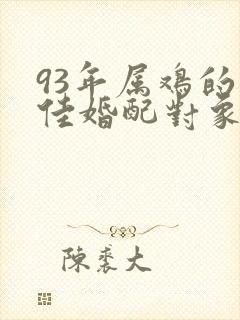 93年属鸡的
佳婚配對象
陳裘大